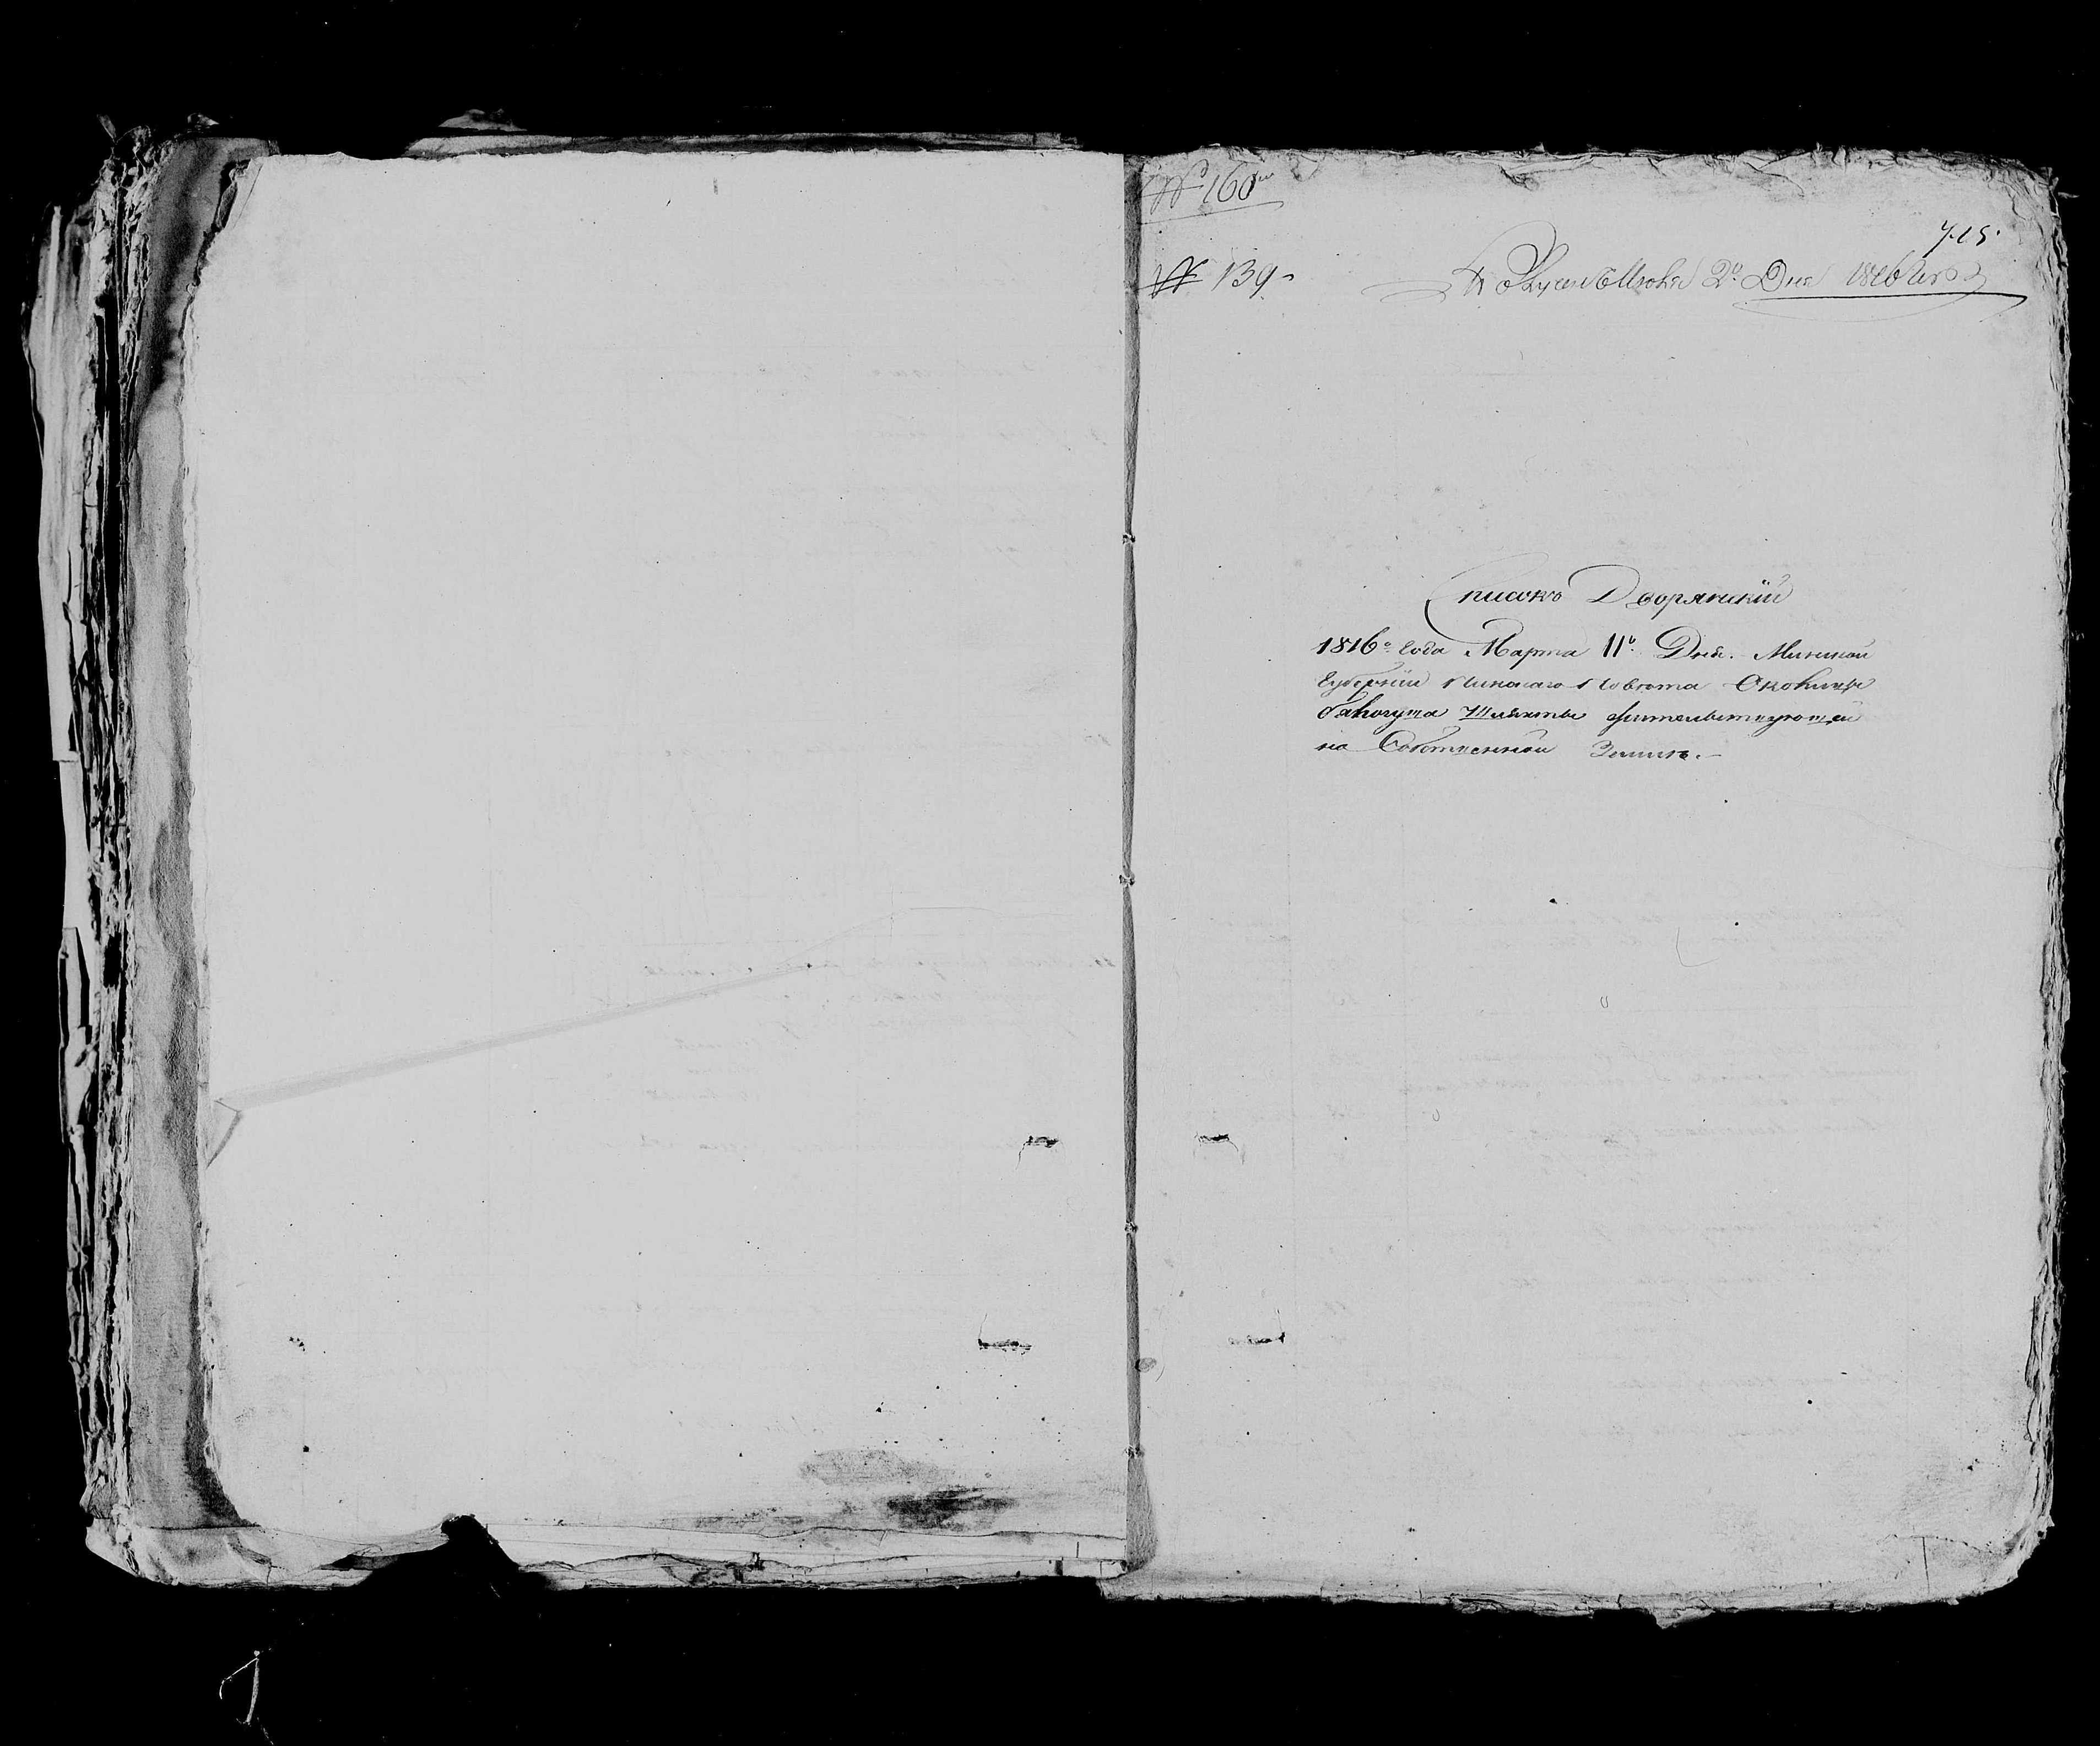 № 160
715.
№ 139
Получено Июня 2го Дня 1816 Года
Списокъ Дворянскій
1816го Года Марта 11го Дня. Минской
Губерніи Пинскаго Повѣта Околицы
Шляхты жительствующей
на Собственной Землѣ.